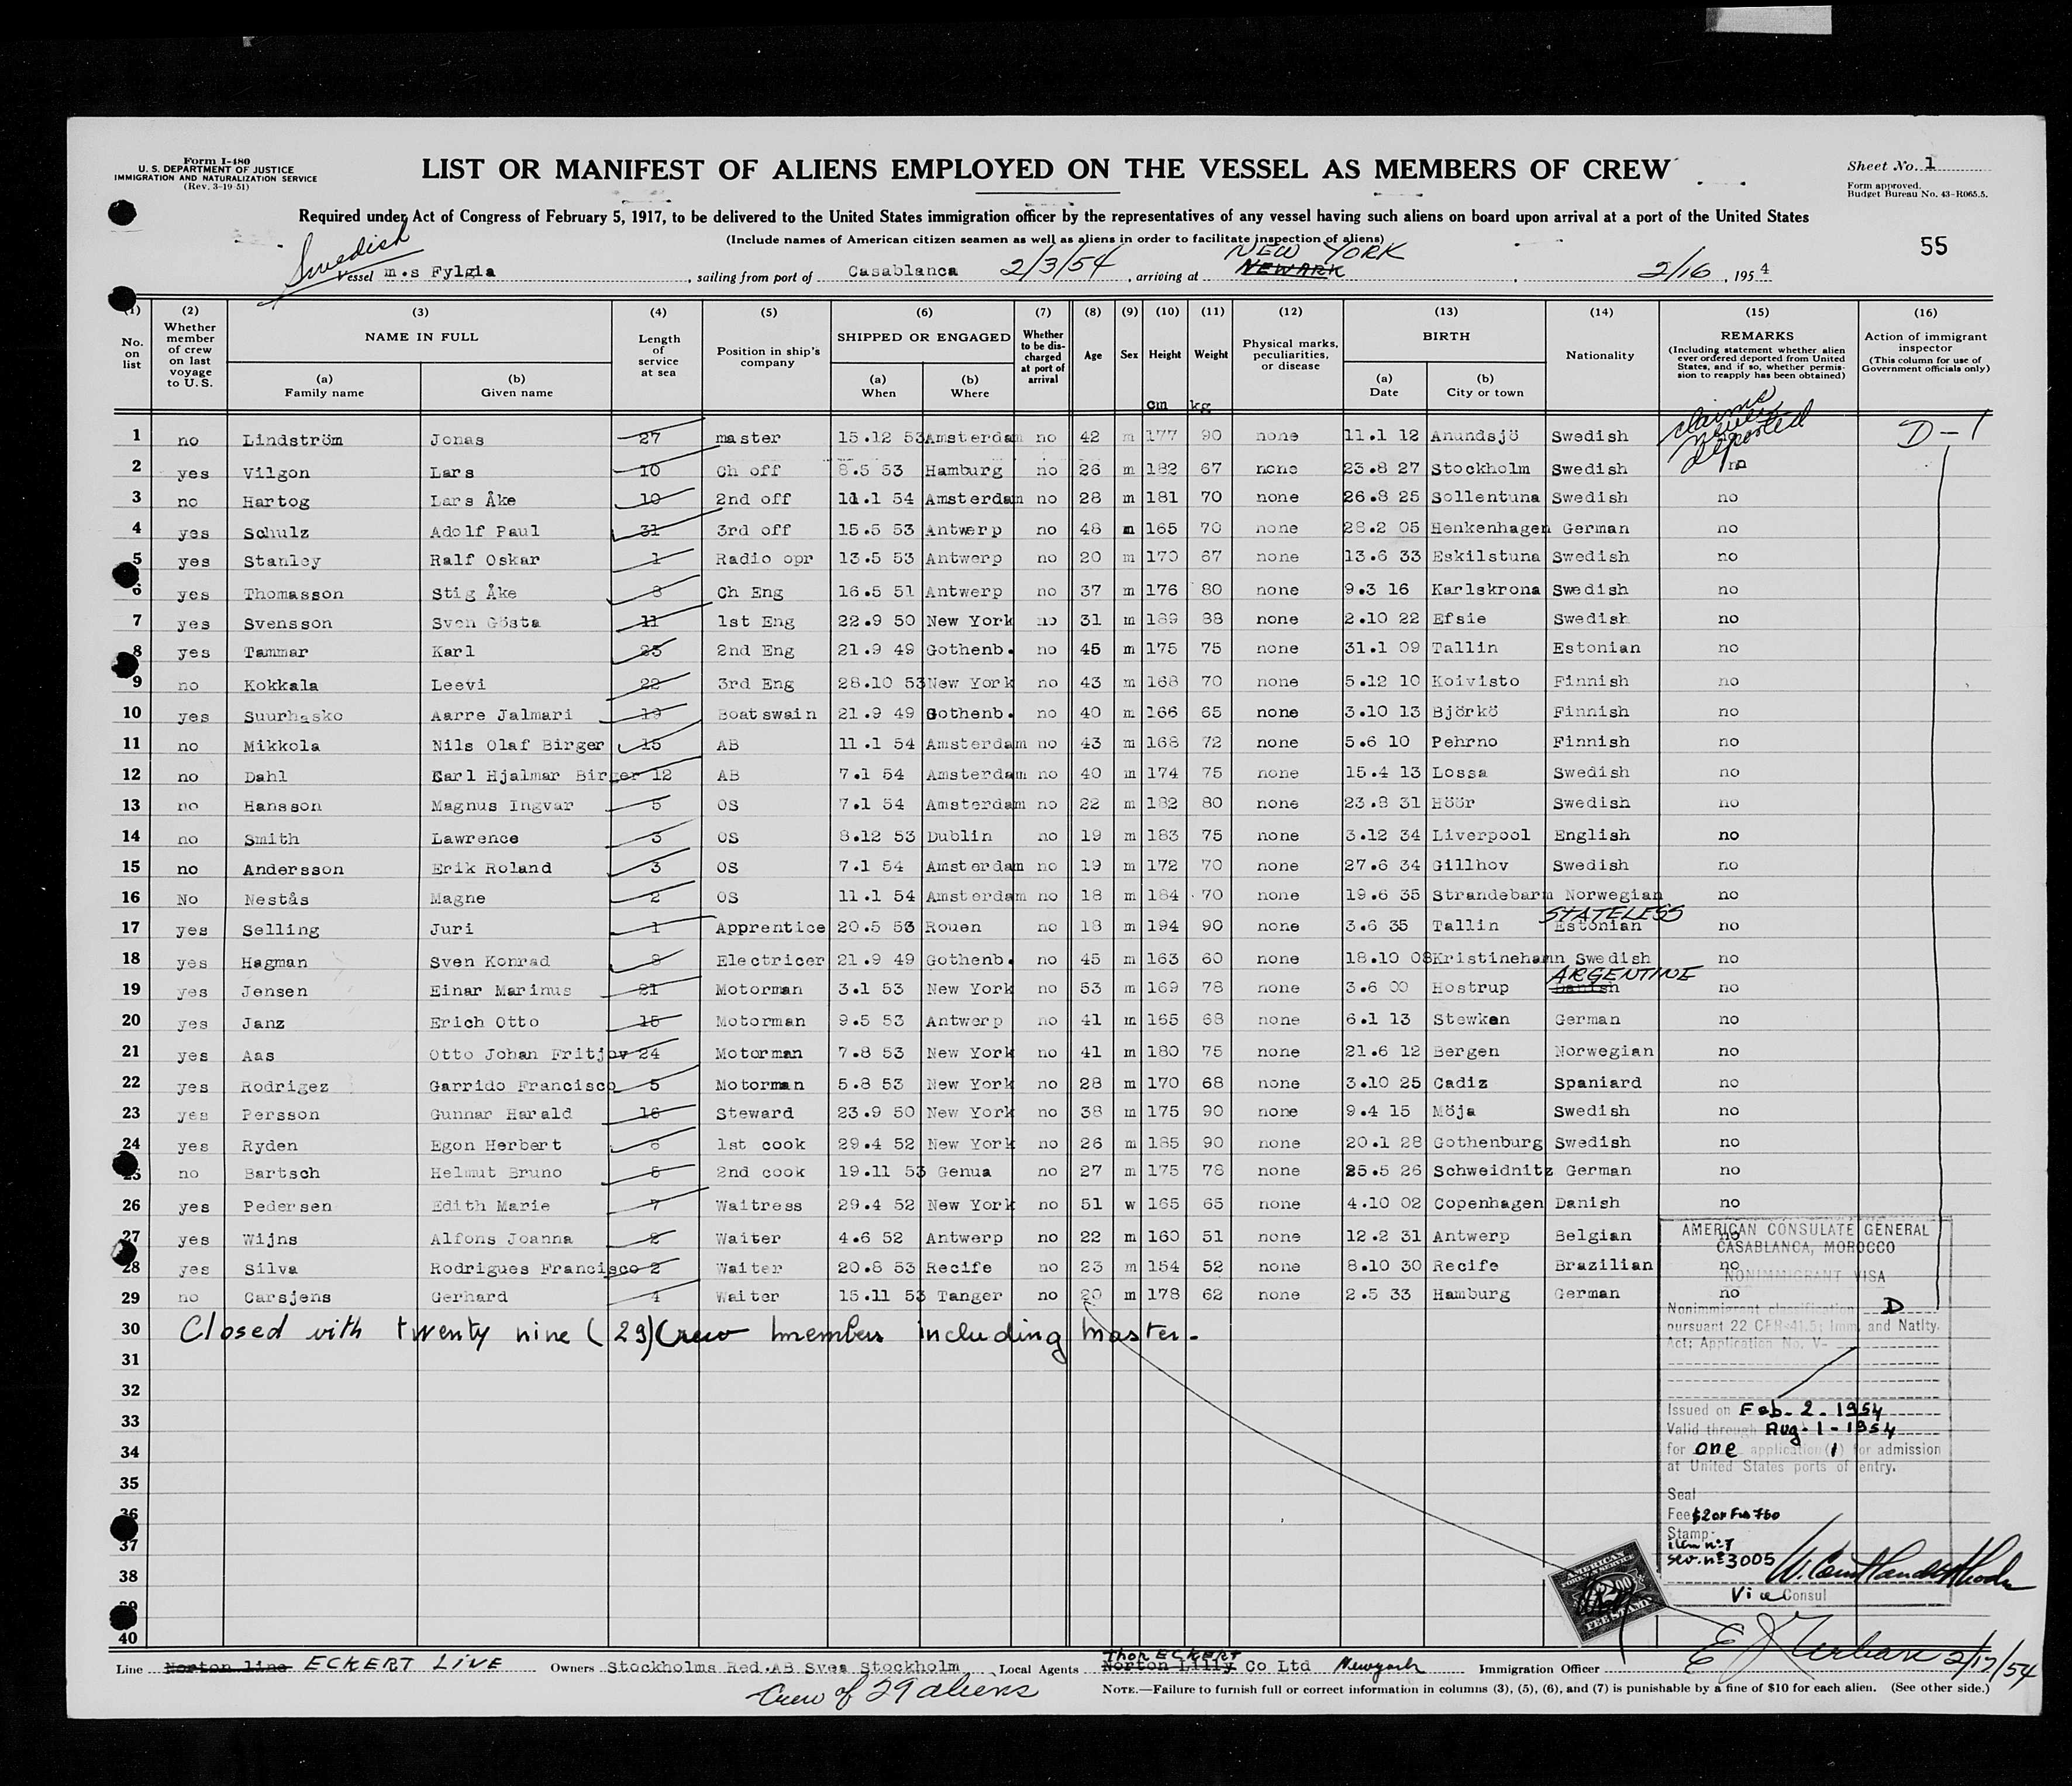 Form I-480
U. S. DEPARTMENT OF JUSTICE
IMMIGRATION AND NATURALIZATION SERVICE
(Rev. 3-19-51)
LIST OR MANIFEST OF ALIENS EMPLOYED ON THE VESSEL AS MEMBERS OF CREW
Sheet No. 1
Form approved.
Budget Bureau No. 43-R065.5.
Required under Act of Congress of February 5, 1917, to be delivered to the United States immigration officer by the representatives of any vessel having such aliens on board upon arrival at a port of the United States
(Include names of American citizen seamen as well as aliens in order to facilitate inspection of aliens)
55
Swedish
Vessel m.s Fylgia, sailing from port of Casablanca 2/3/54, arriving at NEWARK NEW YORK, 2/16, 1954
(1) No. on list
(2) Whether member of crew on last voyage to U. S.
(3) NAME IN FULL (a) Family name (b) Given name
(4) Length of service at sea
(5) Position in ship's company
(6) SHIPPED OR ENGAGED (a) When (b) Where
(7) Whether to be discharged at port of arrival
(8) Age
(9) Sex
(10) Height cm
(11) Weight kg
(12) Physical marks, peculiarities, or disease
(13) BIRTH (a) Date (b) City or town
(14) Nationality
(15) REMARKS (Including statement whether alien ever ordered deported from United States, and if so, whether permission to reapply has been obtained)
(16) Action of immigrant inspector (This column for use of Government officials only)
claims never deported
D-1
1 no Lindström Jonas 27 master 15.12 53 Amsterdam no 42 m 177 90 none 11.1 12 Anundsjö Swedish
2 yes Vilgon Lars 10 Ch off 8.5 53 Hamburg no 26 m 182 67 none 23.8 27 Stockholm Swedish no
3 no Hartog Lars Åke 10 2nd off 11.1 54 Amsterdam no 28 m 181 70 none 26.8 25 Sollentuna Swedish no
4 yes Schulz Adolf Paul 31 3rd off 15.5 53 Antwerp no 48 m 165 70 none 28.2 05 Henkenhagen German no
5 yes Stanley Ralf Oskar 1 Radio opr 13.5 53 Antwerp no 20 m 170 67 none 13.6 33 Eskilstuna Swedish no
6 yes Thomasson Stig Åke 8 Ch Eng 16.5 51 Antwerp no 37 m 176 80 none 9.3 16 Karlskrona Swedish no
7 yes Svensson Sven Gösta 11 1st Eng 22.9 50 New York no 31 m 189 88 none 2.10 22 Efsie Swedish no
8 yes Tammar Karl 23 2nd Eng 21.9 49 Gothenb. no 45 m 175 75 none 31.1 09 Tallin Estonian no
9 no Kokkala Leevi 22 3rd Eng 28.10 53 New York no 43 m 168 70 none 5.12 10 Koivisto Finnish no
10 yes Suurhasko Aarre Jalmari 19 Boatswain 21.9 49 Gothenb. no 40 m 166 65 none 3.10 13 Björkö Finnish no
11 no Mikkola Nils Olaf Birger 15 AB 11.1 54 Amsterdam no 43 m 168 72 none 5.6 10 Pehrno Finnish no
12 no Dahl Carl Hjalmar Birger 12 AB 7.1 54 Amsterdam no 40 m 174 75 none 15.4 13 Lossa Swedish no
13 no Hansson Magnus Ingvar 5 OS 7.1 54 Amsterdam no 22 m 182 80 none 23.8 31 Höör Swedish no
14 no Smith Lawrence 3 OS 8.12 53 Dublin no 19 m 183 75 none 3.12 34 Liverpool English no
15 no Andersson Erik Roland 3 OS 7.1 54 Amsterdam no 19 m 172 70 none 27.6 34 Gillhov Swedish no
16 No Nestås Magne 2 OS 11.1 54 Amsterdam no 18 m 184 70 none 19.6 35 Strandebarm Norwegian no
17 yes Selling Juri 1 Apprentice 20.5 53 Rouen no 18 m 194 90 none 3.6 35 Tallin Estonian STATELESS no
18 yes Hagman Sven Konrad 8 Electricer 21.9 49 Gothenb. no 45 m 163 60 none 18.10 08 Kristinehamn Swedish no
19 yes Jensen Einar Marinus 21 Motorman 3.1 53 New York no 53 m 169 78 none 3.6 00 Hostrup Danish ARGENTINE no
20 yes Janz Erich Otto 15 Motorman 9.5 53 Antwerp no 41 m 165 68 none 6.1 13 Stewken German no
21 yes Aas Otto Johan Fritjov 24 Motorman 7.8 53 New York no 41 m 180 75 none 21.6 12 Bergen Norwegian no
22 yes Rodrigez Garrido Francisco 5 Motorman 5.8 53 New York no 28 m 170 68 none 3.10 25 Cadiz Spaniard no
23 yes Persson Gunnar Harald 16 Steward 23.9 50 New York no 38 m 175 90 none 9.4 15 Möja Swedish no
24 yes Ryden Egon Herbert 6 1st cook 29.4 52 New York no 26 m 185 90 none 20.1 28 Gothenburg Swedish no
25 no Bartsch Helmut Bruno 5 2nd cook 19.11 53 Genua no 27 m 175 78 none 25.5 26 Schweidnitz German no
26 yes Pedersen Edith Marie 7 Waitress 29.4 52 New York no 51 w 165 65 none 4.10 02 Copenhagen Danish no
27 yes Wijns Alfons Joanna 2 Waiter 4.6 52 Antwerp no 22 m 160 51 none 12.2 31 Antwerp Belgian no
28 yes Silva Rodrigues Francisco 2 Waiter 20.8 53 Recife no 23 m 154 52 none 8.10 30 Recife Brazilian no
29 no Carsjens Gerhard 4 Waiter 15.11 53 Tanger no 20 m 178 62 none 2.5 33 Hamburg German no
30 Closed with twenty nine (29) Crew members including master.
31
32
33
34
35
36
37
38
39
40
AMERICAN CONSULATE GENERAL
CASABLANCA, MOROCCO
NONIMMIGRANT VISA
Nonimmigrant classification D
pursuant 22 CFR 41.5; Imm. and Natlty.
Act; Application No. V-
Issued on Feb. 2 - 1954
Valid through Aug. 1 - 1954
for one application( ) for admission
at United States ports of entry.
Seal
Fee $2 or Frs 760
Stamp
Item nº 7
ser. nº 3005
Vice Consul
AMERICAN
FOREIGN SERVICE
FEE STAMP
Line Norton line ECKERT LINE Owners Stockholms Red.AB Svea Stockholm Local Agents Norton Lilly Thor ECKERT Co Ltd Newyork Immigration Officer 2/17/54
Crew of 29 aliens
NOTE.—Failure to furnish full or correct information in columns (3), (5), (6), and (7) is punishable by a fine of $10 for each alien. (See other side.)